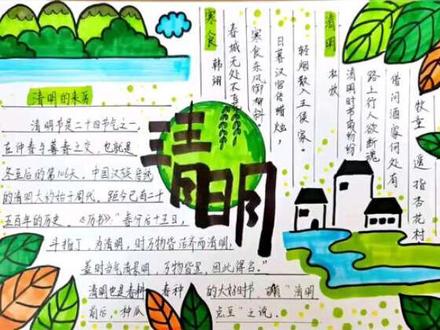 清明
杜牧
清明时节雨纷纷
路上行人欲断魂
借问酒家何处有
牧童遥指杏花村
寒食
韩翃
春城无处不飞
寒食东风御柳斜
日暮汉宫传蜡烛,
轻烟散入王侯家。
清明的来历
清明节是二十四节气之一,
在仲春与暮春之交,也就是
冬至后的第106天,中国汉族传统
的清明大约始于周代,距今已有二千
五百年的历史。《历书》:"春分后十五日,
斗指丁,为清明,时万物皆洁齐而清明,
盖时当气清景明,万物皆显,因此得名。"
清明也是春耕春种的大好时节,"清明
前后,种瓜点豆"之说。
清明